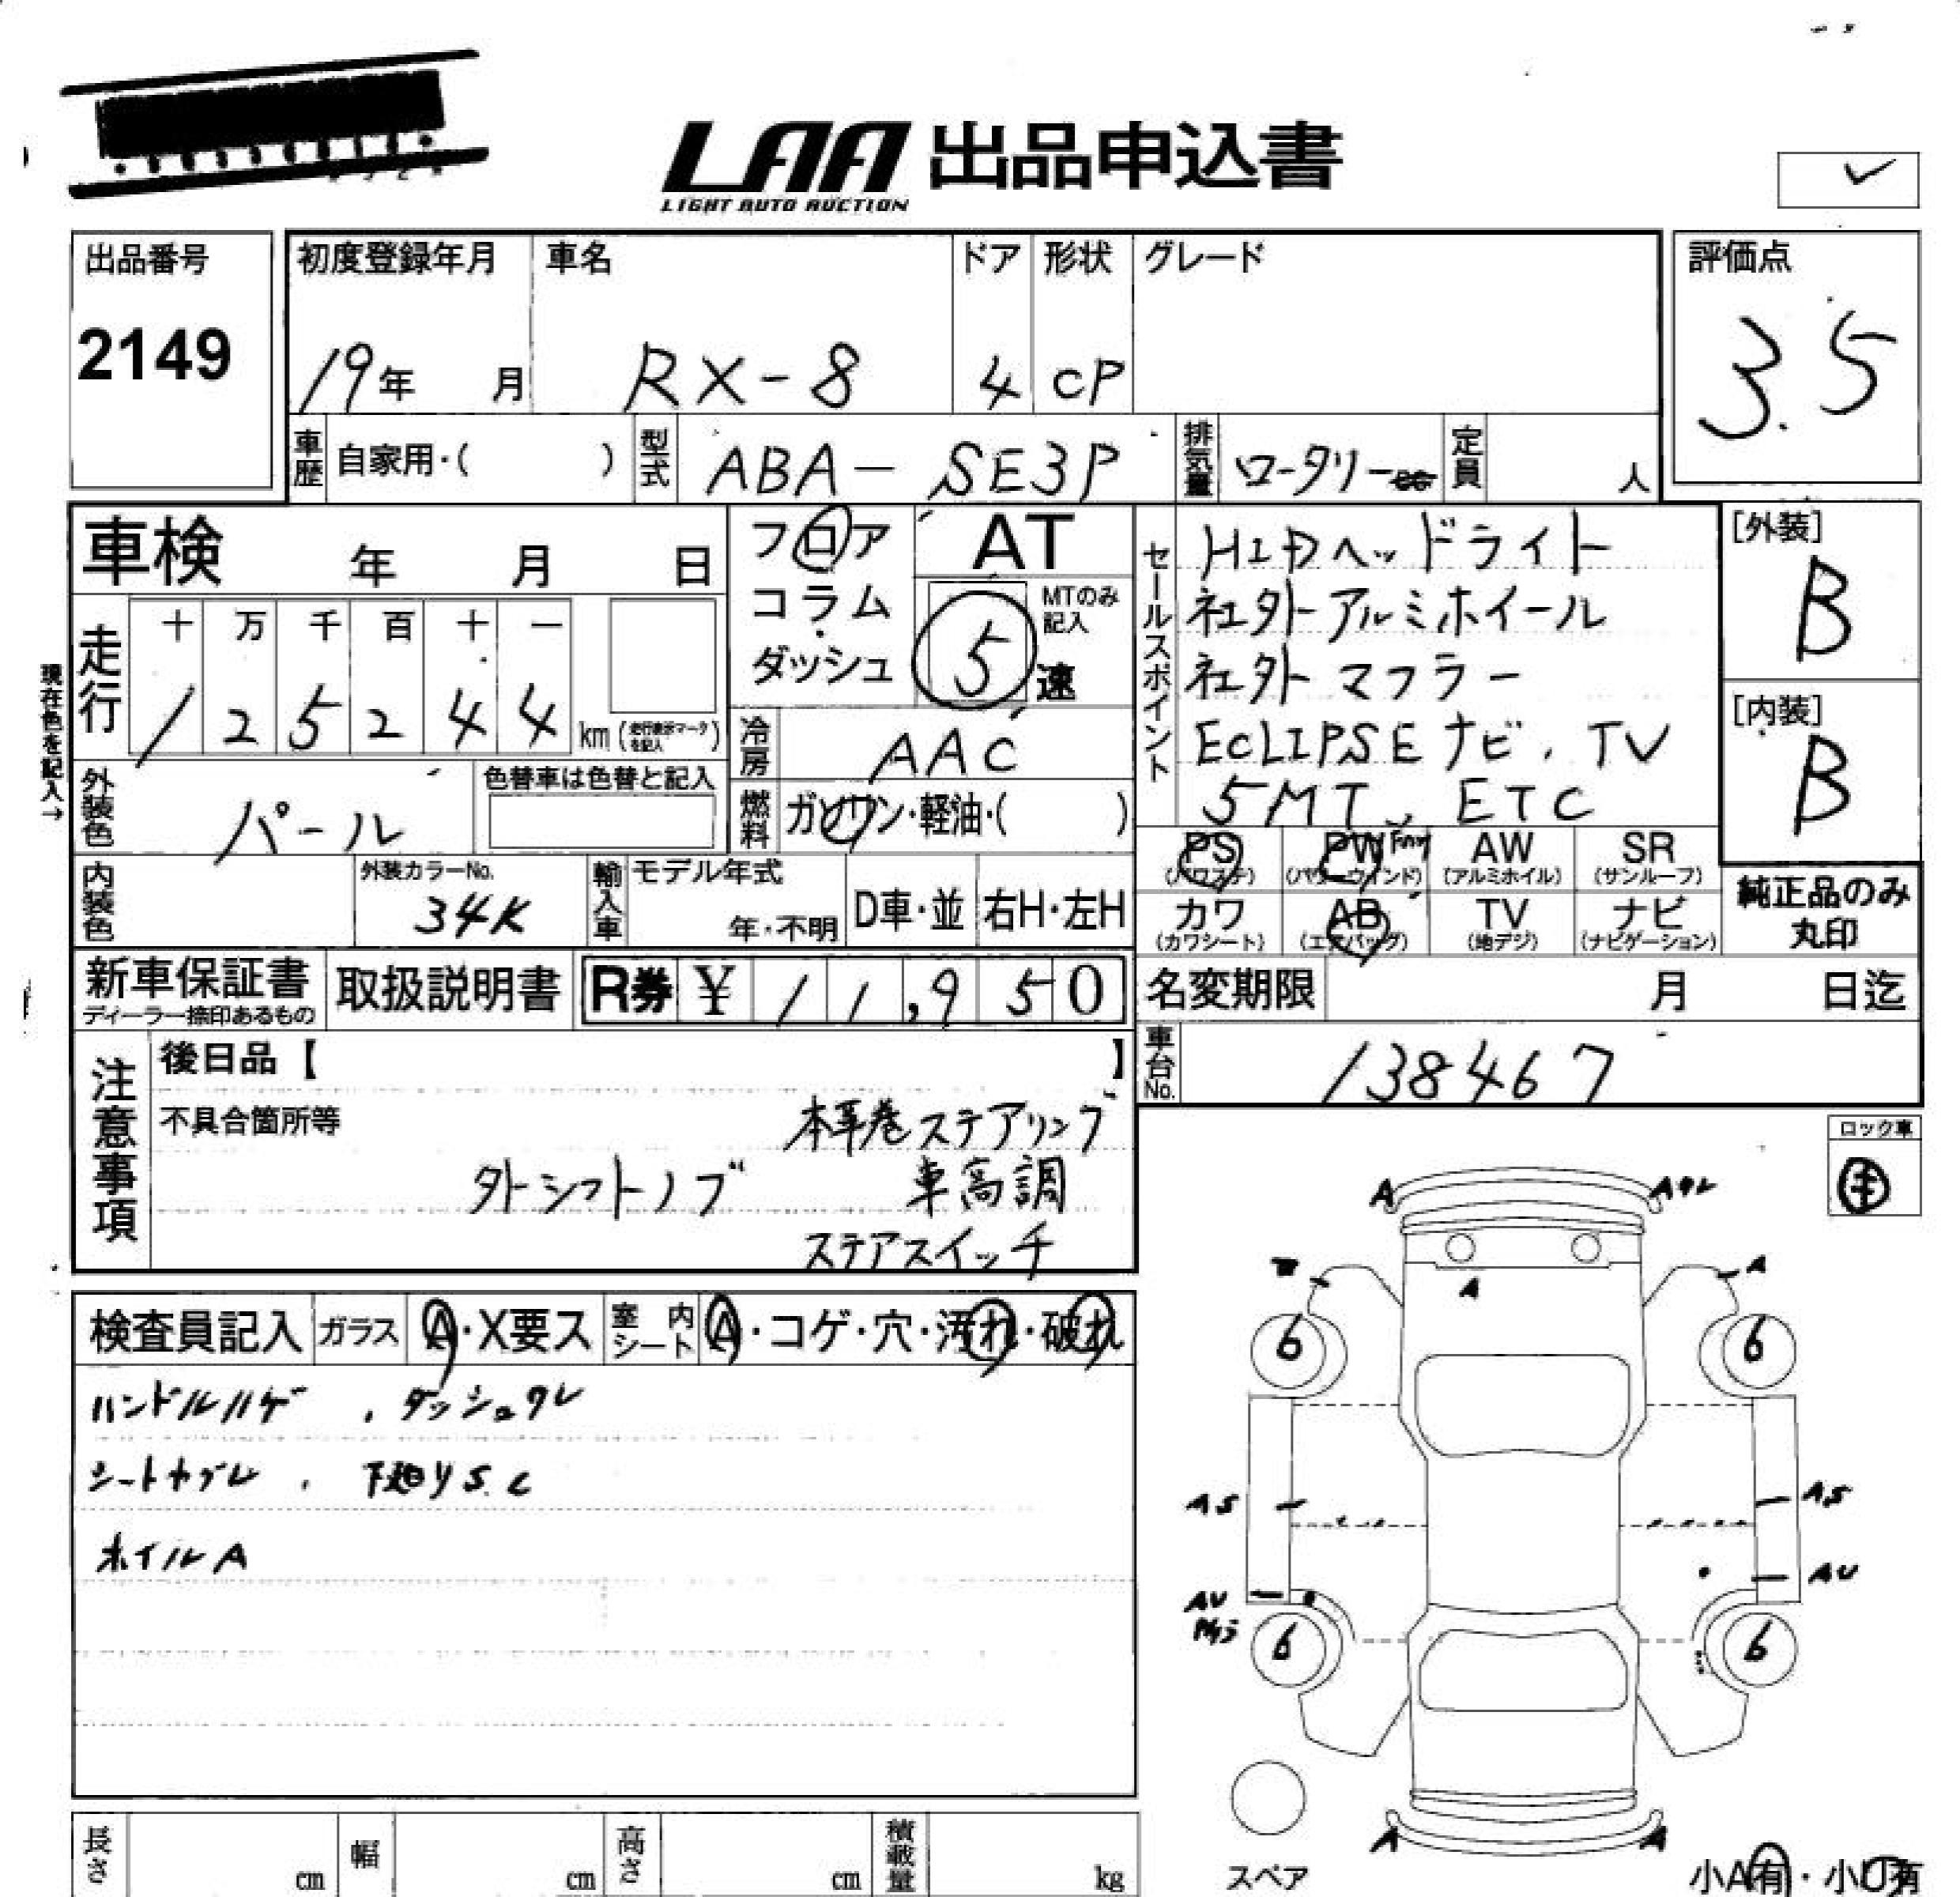 LAA 出品申込書
LIGHT AUTO AUCTION
出品番号
2149
初度登録年月
19年 月
車名
RX-8
ドア
4
形状
CP
グレード
評価点
3.5
車歴 自家用・( )
型式 ABA-SE3P
排気量 ロータリー cc
定員 人
車検 年 月 日
フロア
コラム
ダッシュ
AT
MTのみ記入
5 速
現在色を記入→
走行 十 万 千 百 十 一
1 2 5 2 4 4 km (走行表示マークを記入)
冷房 AAC
燃料 ガソリン・軽油・( )
外装色 パール
色替車は色替と記入
内装色
外装カラーNo.
34K
輸入車 モデル年式
年・不明
D車・並 右H・左H
セールスポイント
HIDヘッドライト
社外アルミホイール
社外マフラー
ECLIPSEナビ、TV
5MT、ETC
[外装]
B
[内装]
B
PS (パワステ)
PW (パワーウインド)
AW (アルミホイル)
SR (サンルーフ)
カワ (カワシート)
AB (エアバッグ)
TV (地デジ)
ナビ (ナビゲーション)
純正品のみ
丸印
新車保証書
ディーラー捺印あるもの
取扱説明書
R券 ¥ 11,950
名変期限 月 日迄
車台No. 138467
注意事項
後日品【 】
不具合箇所等
本革巻ステアリング
外シフトノブ 車高調
ステアスイッチ
ロック車
検査員記入 ガラス A・X要ス 室内シート A・コゲ・穴・汚れ・破れ
ハンドルハゲ、ダッシュワレ
シートヤブレ、下廻りS.C
ホイルA
A
A ワレ
A
A
6
6
AS
AS
AU
AU
6
6
A
A
スペア
長さ cm 幅 cm 高さ cm 積載量 kg
小A有・小U有